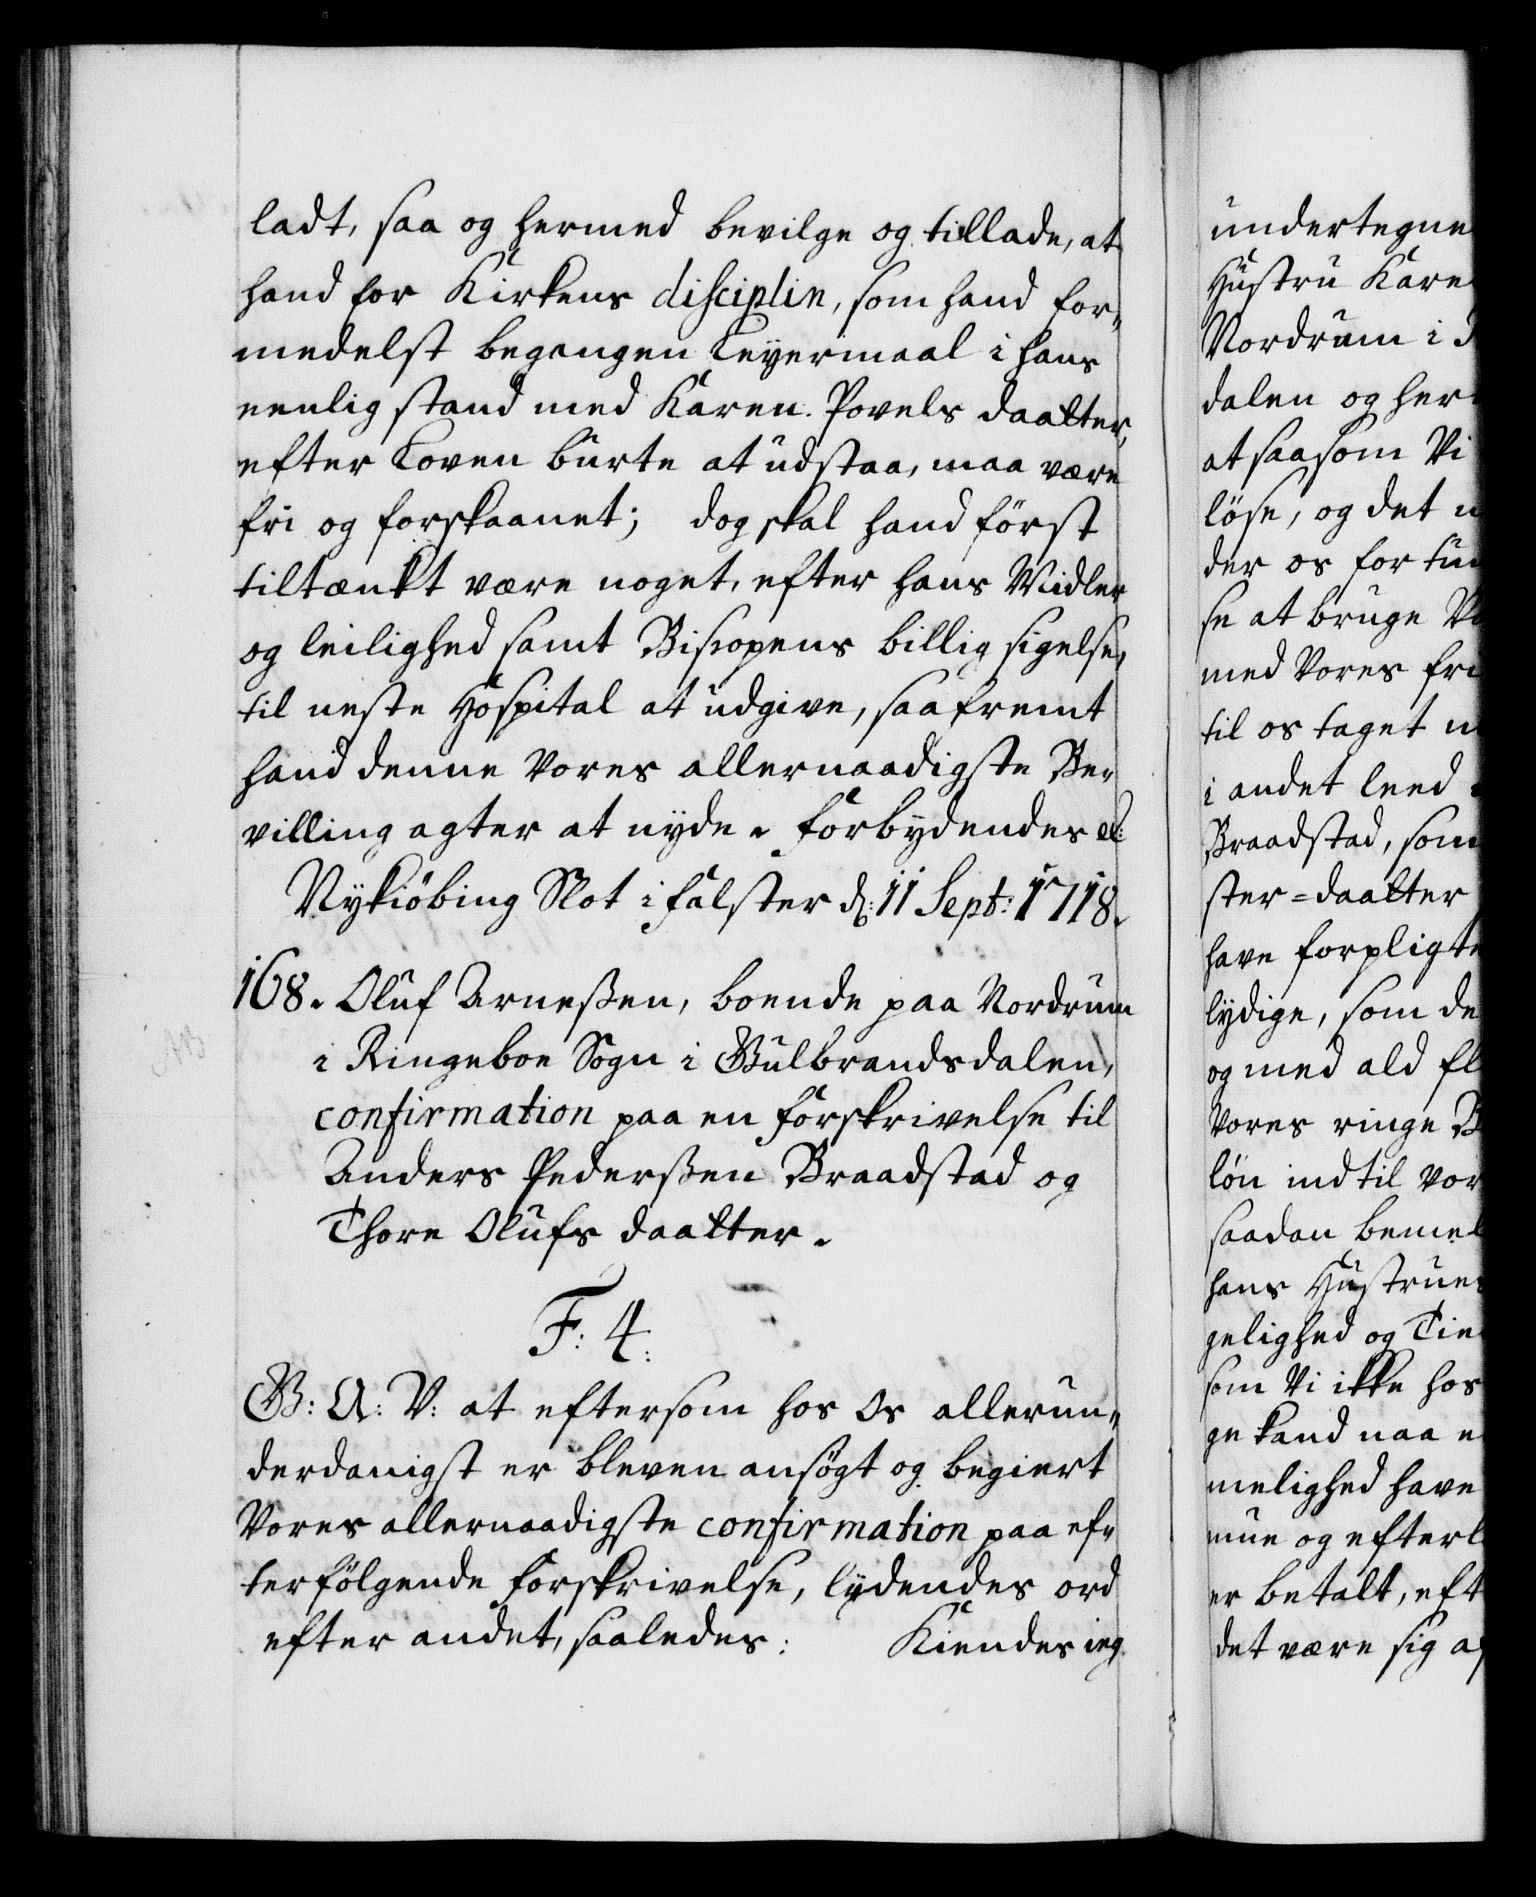 ladt, saa og hermed bevilge og tillade, at
hand for Kirkens disciplin, som hand for„
medelst begangen Leyermaal i hans
eenlig stand med Karen Povels daatter,
efter Loven burte at udstaa, maa være
fri og forskaanet; dog skal hand först
tiltænkt være noget, efter hans Midler
og leilighed samt Biscopens billig sigelse,
til neste Hospital at udgive, saafremt
hand denne Vores allernaadigste Be„
villing agter at nyde. Forbydendes etc:
Nykiöbing Slot i Falster d: 11 Sept: 1718.
168. Oluf Arneßen, boende paa Nordrum
i Ringeboe Sogn i Gulbrandsdalen,
confirmation paa en forskrivelse til
Anders Pederßen Braadstad og
Thore Olufs daatter.
F: 4.
G: A: V: at eftersom hos Os allerun„
derdanigst er bleven ansögt og begiert
Vores allernaadigste confirmation paa ef„
terfölgende forskrivelse, lydendes ord
efter andet, saaledes: Kiendes ieg
undertegne
Hustru Kare
Nordrum i
dalen og her
at saasom Vi
löse, og det
der os for
se at bruge
med Vores
til os taget
i andet leed
Braadstad, som
ster=daatter
have forpligte
lydige, som de
og med ald fl
Vores ringe B
lön indtil vor
saadan bemel
hans Hustrues
gelighed og Tie
som Vi ikke hos
ge kand naa e
melighed have
mue og efterl
er betalt, eft
det være sig a